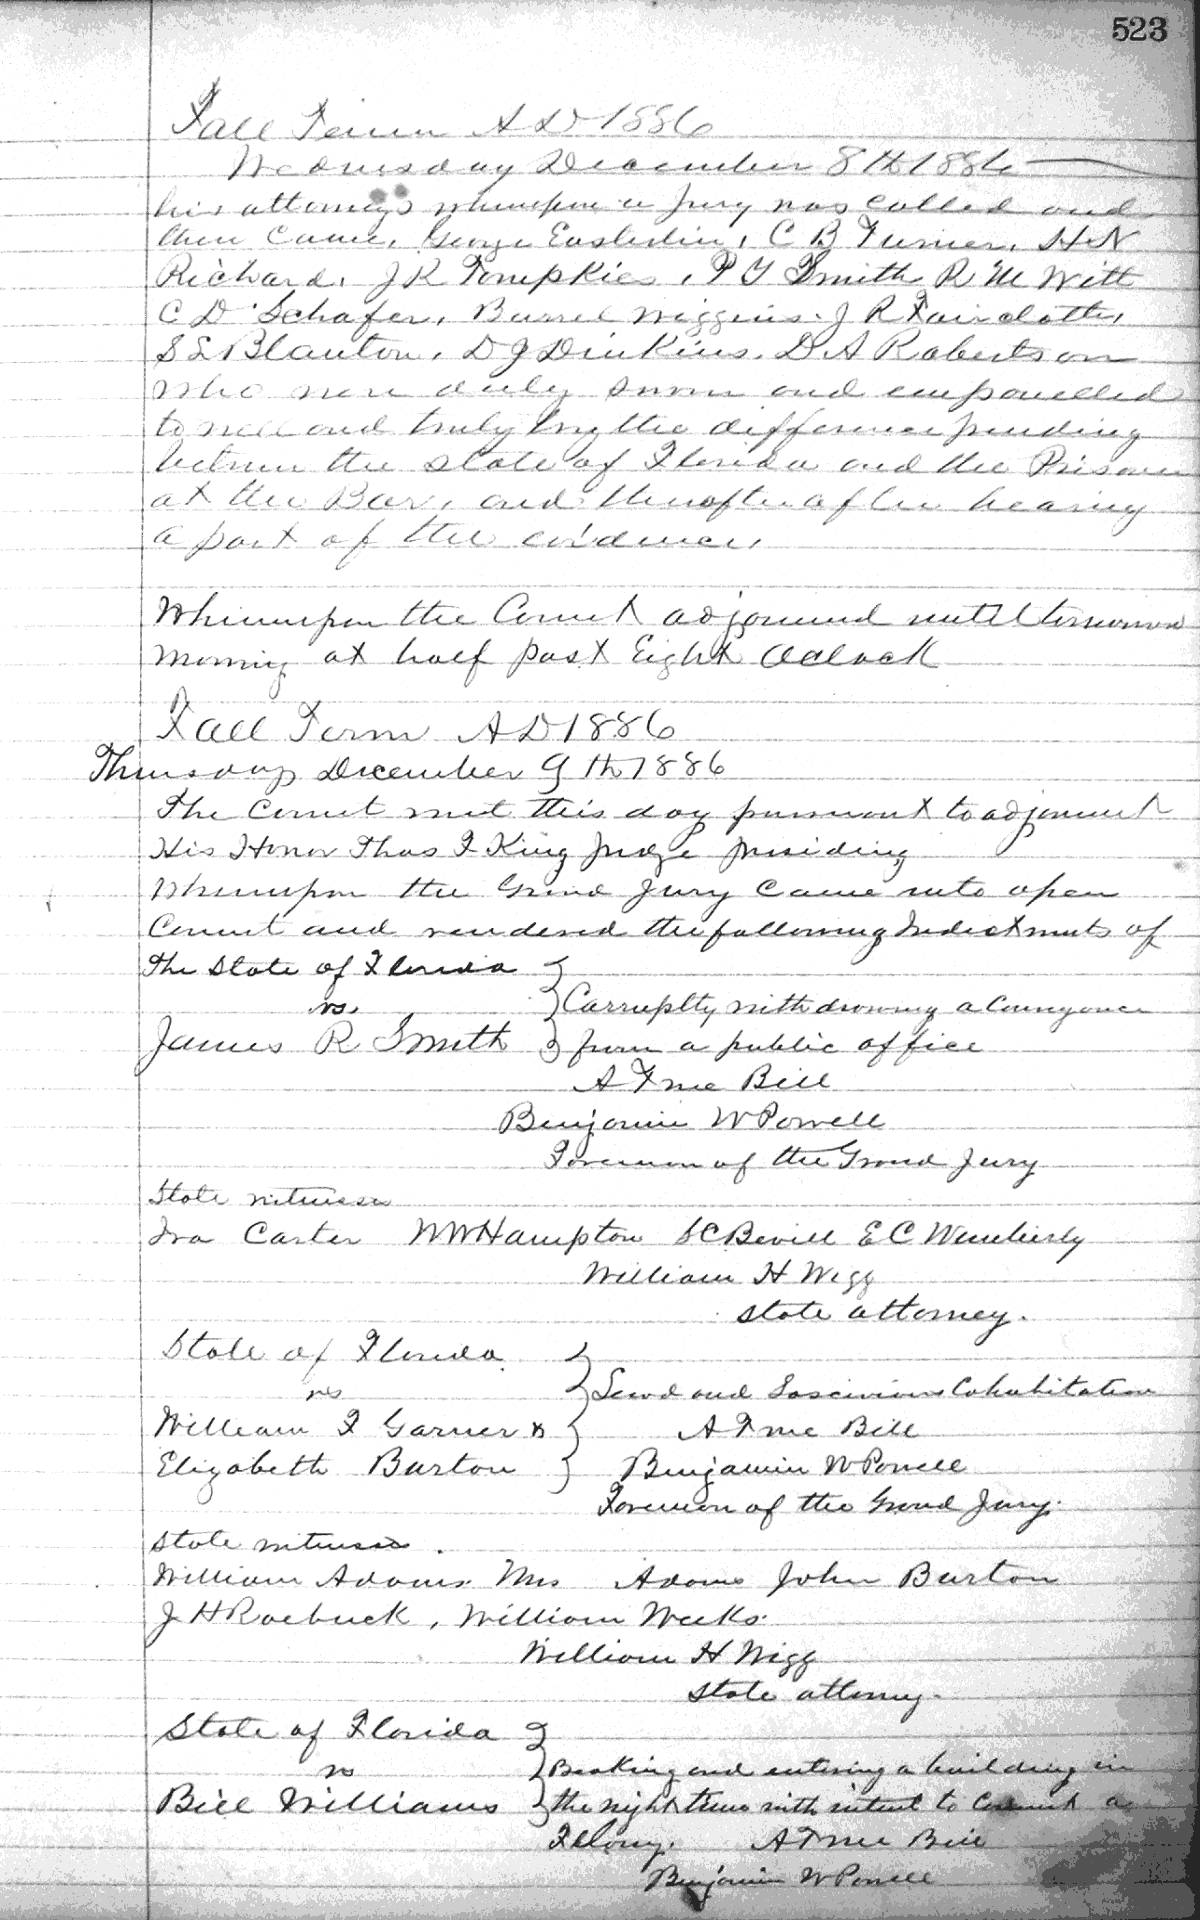 523
Fall Term A D 1886
Wednesday December 8th 1886
his attorneys whereupon a Jury was called and
then came, George Easterlin, C B Turner, H N
Richard, J R Tompkies, P G Smith R M Witt
C D Schafer, Burrel Wiggins. J R Faircloth,
S L Blanton, D J Dinkins. D A Robertson
who were duly sworn and empanelled
to well and truly try the difference pending
between the State of Florida and the Prisoner
at the Bar, and thereafter after hearing
a part of the evidence,
Whereupon the Court adjourned until tomorrow
morning at half past Eight Oclock
Fall Term A D 1886
Thursday December 9th 1886
The Court met this day pursuant to adjournment
His Honor Thos F King Judge presiding
Whereupon the Grand Jury came into open
Court and rendered the following Indictments of
The State of Florida
vs.
Corruptly withdrawing a Conveyance
James R Smith
from a public office
A True Bill
Benjamin W Powell
Foreman of the Grand Jury
State witnesses
Ira Carter W W Hampton S C Bevill E C Wimberly
William H Wigg
State attorney.
State of Florida
vs
Lewd and Lascivious Cohabitation
William F Garner &
A True Bill
Elizabeth Burton
Benjamin W Powell
Foreman of the Grand Jury.
State witnesses.
William Adams. Mrs Adams John Burton
J H Roebuck, William Weeks.
William H Wigg
State attorney.
State of Florida
vs
Breaking and entering a building in
Bill Williams
the night time with intent to commit a
Felony. A True Bill
Benjamin W Powell